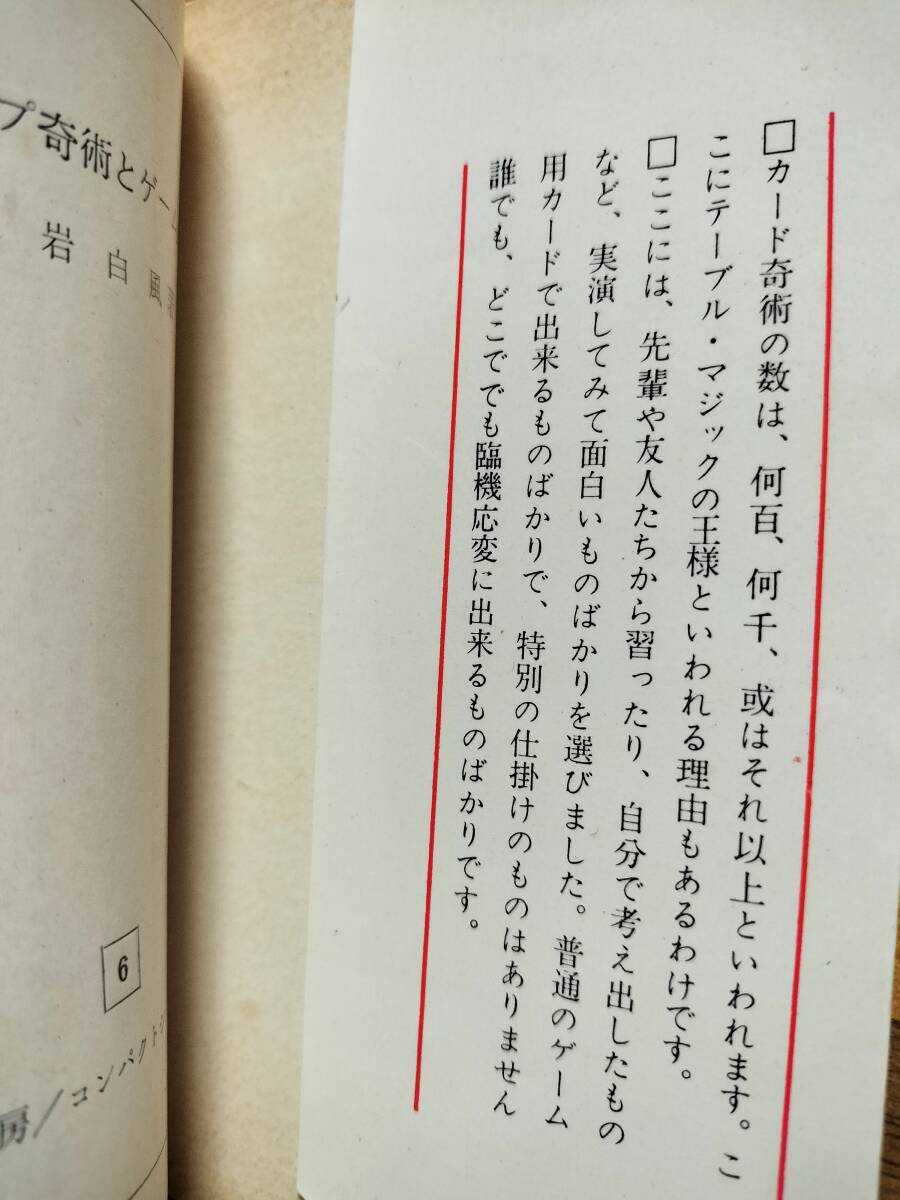 □カード奇術の数は、何百、何千、或はそれ以上といわれます。こ
こにテーブル・マジックの王様といわれる理由もあるわけです。
□ここには、先輩や友人たちから習ったり、自分で考え出したもの
など、実演してみて面白いものばかりを選びました。普通のゲーム
用カードで出来るものばかりで、特別の仕掛けのものはありません
誰でも、どこででも臨機応変に出来るものばかりです。
プ奇術とゲーム
岩白風
6
房/コンパクト